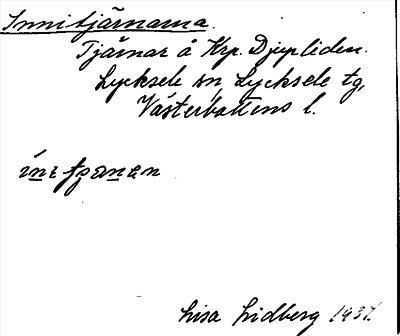 Innitjärnarna.
Tjärnar å Krp. Djupliden.
Lycksele sn, Lycksele tg,
Västerbottens l.
Lisa Lidberg 1937.